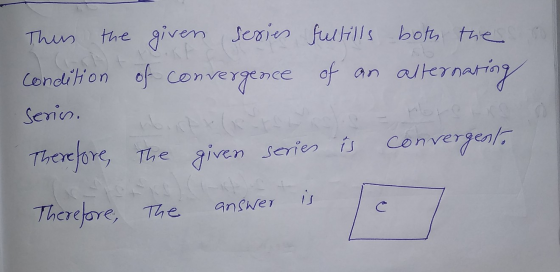 Thus the given series fulfills both the
condition of convergence of an alternating
series.
Therefore, The given series is convergent.
Therefore, The answer is C